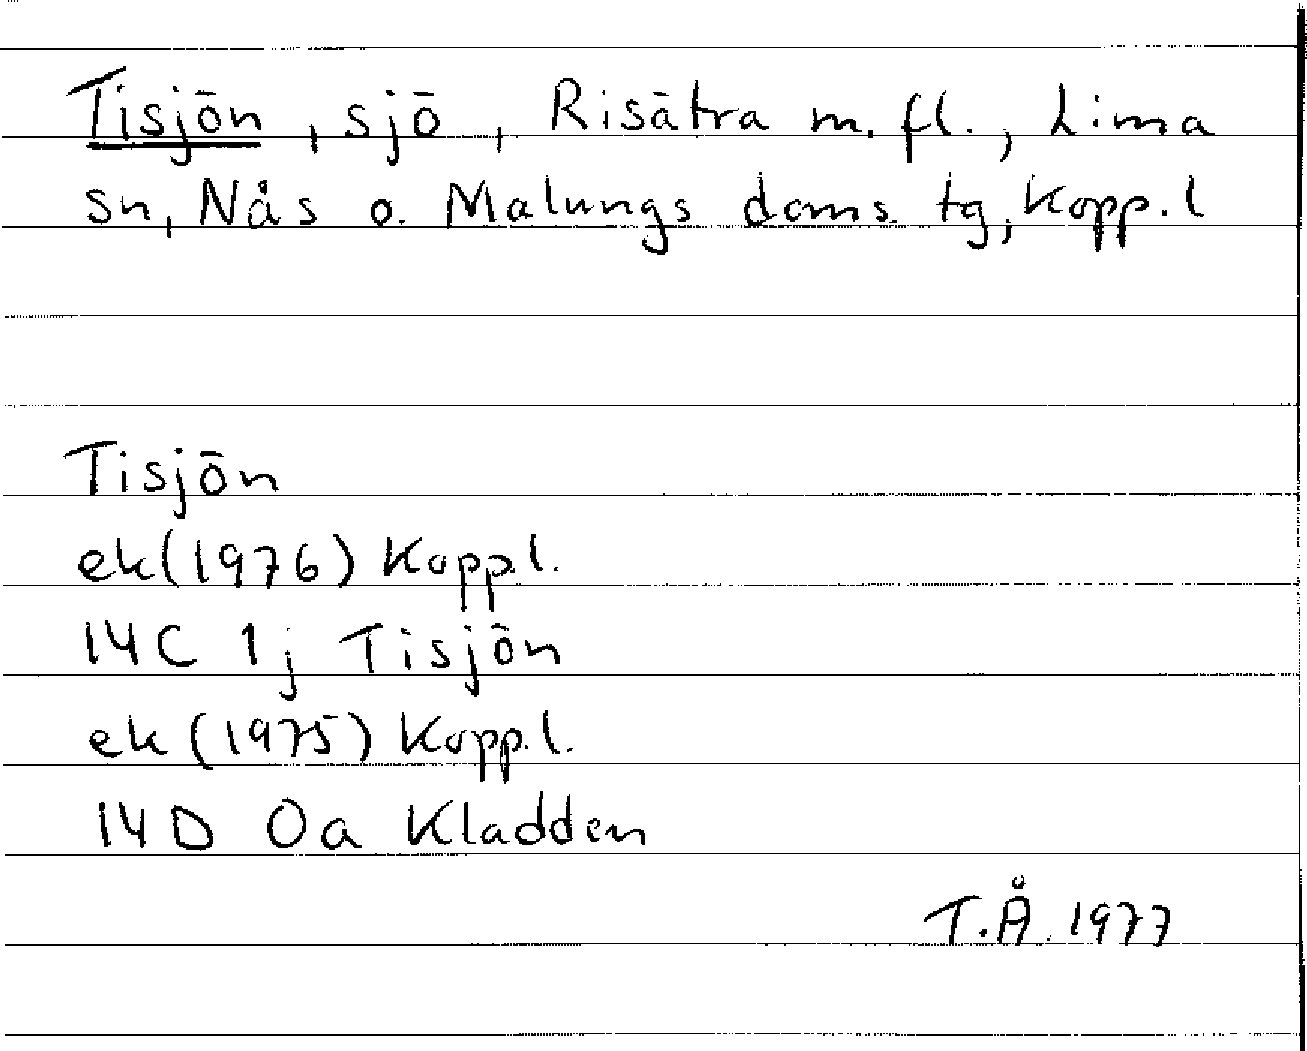 Tisjön, sjö, Risätra m. fl., Lima
sn, Nås o. Malungs doms. tg, Kopp. l
Tisjön
ek (1976) Kopp.l.
14C 1j Tisjön
ek (1975) Kopp.l.
14D 0a Kladden
T.Å. 1977